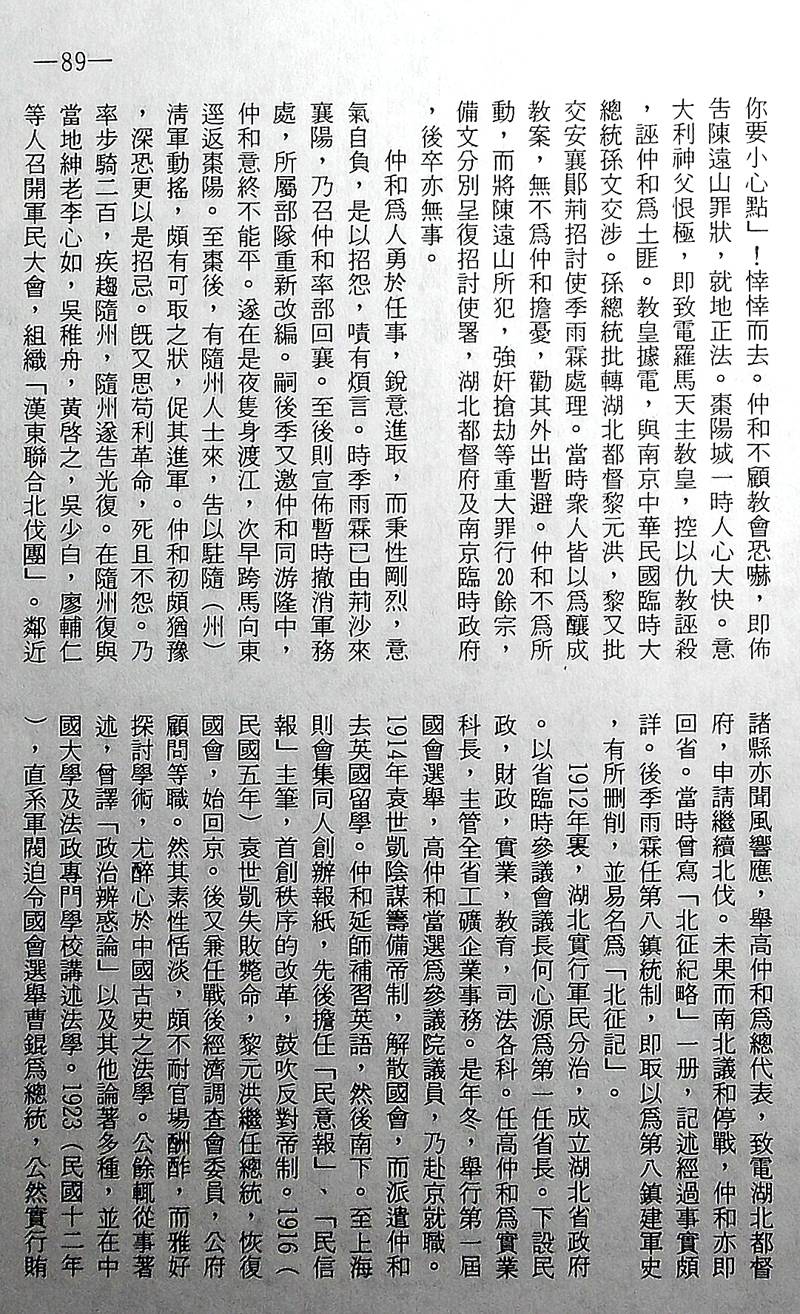 —89—
你要小心點」！悻悻而去。仲和不顧教會恐嚇，即佈
告陳遠山罪狀，就地正法。棗陽城一時人心大快。意
大利神父恨極，即致電羅馬天主教皇，控以仇教誣殺
，誣仲和爲土匪。教皇據電，與南京中華民國臨時大
總統孫文交涉。孫總統批轉湖北都督黎元洪，黎又批
交安襄鄖荊招討使季雨霖處理。當時衆人皆以爲釀成
教案，無不爲仲和擔憂，勸其外出暫避。仲和不爲所
動，而將陳遠山所犯，強奸搶劫等重大罪行20餘宗，
備文分別呈復招討使署，湖北都督府及南京臨時政府
，後卒亦無事。
仲和爲人勇於任事，銳意進取，而秉性剛烈，意
氣自負，是以招怨，嘖有煩言。時季雨霖已由荊沙來
襄陽，乃召仲和率部回襄。至後則宣佈暫時撤消軍務
處，所屬部隊重新改編。嗣後季又邀仲和同游隆中，
仲和意終不能平。遂在是夜隻身渡江，次早跨馬向東
逕返棗陽。至棗後，有隨州人士來，告以駐隨（州）
淸軍動搖，頗有可取之狀，促其進軍。仲和初頗猶豫
，深恐更以是招忌。旣又思苟利革命，死且不怨。乃
率步騎二百，疾趨隨州，隨州遂吿光復。在隨州復與
當地紳老李心如，吳稚舟，黃啓之，吳少白，廖輔仁
等人召開軍民大會，組織「漢東聯合北伐團」。鄰近
諸縣亦聞風響應，舉高仲和爲總代表，致電湖北都督
府，申請繼續北伐。未果而南北議和停戰，仲和亦即
回省。當時曾寫「北征紀略」一册，記述經過事實頗
詳。後季雨霖任第八鎮統制，即取以爲第八鎮建軍史
，有所刪削，並易名爲「北征記」。
1912年裏，湖北實行軍民分治，成立湖北省政府
。以省臨時參議會議長何心源爲第一任省長。下設民
政，財政，實業，教育，司法各科。任高仲和爲實業
科長，主管全省工礦企業事務。是年冬，舉行第一屆
國會選舉，高仲和當選爲參議院議員，乃赴京就職。
1914年袁世凱陰謀籌備帝制，解散國會，而派遣仲和
去英國留學。仲和延師補習英語，然後南下。至上海
則會集同人創辦報紙，先後擔任「民意報」、「民信
報」主筆，首創秩序的改革，鼓吹反對帝制。1916（
民國五年）袁世凱失敗斃命，黎元洪繼任總統，恢復
國會，始回京。後又兼任戰後經濟調查會委員，公府
顧問等職。然其素性恬淡，頗不耐官場酬酢，而雅好
探討學術，尤醉心於中國古史之法學。公餘輒從事著
述，曾譯「政治辨惑論」以及其他論著多種，並在中
國大學及法政專門學校講述法學。1923（民國十二年
），直系軍閥迫令國會選舉曹錕爲總統，公然實行賄